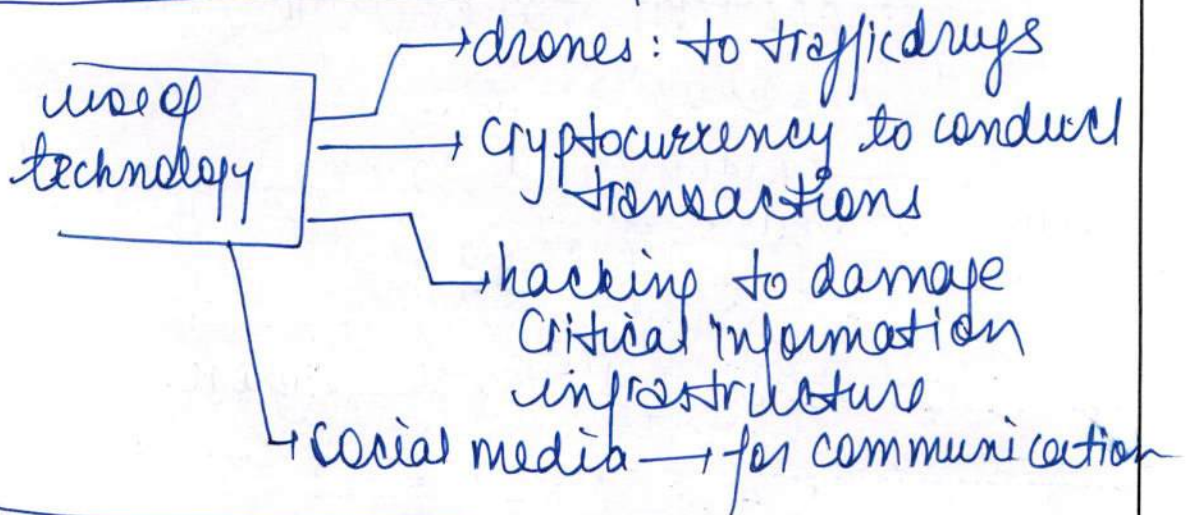 use of
technology
→ drones : to traffic drugs
→ Cryptocurrency to conduct
transactions
→ hacking to damage
Critical information
infrastructure
→ social media → for communication